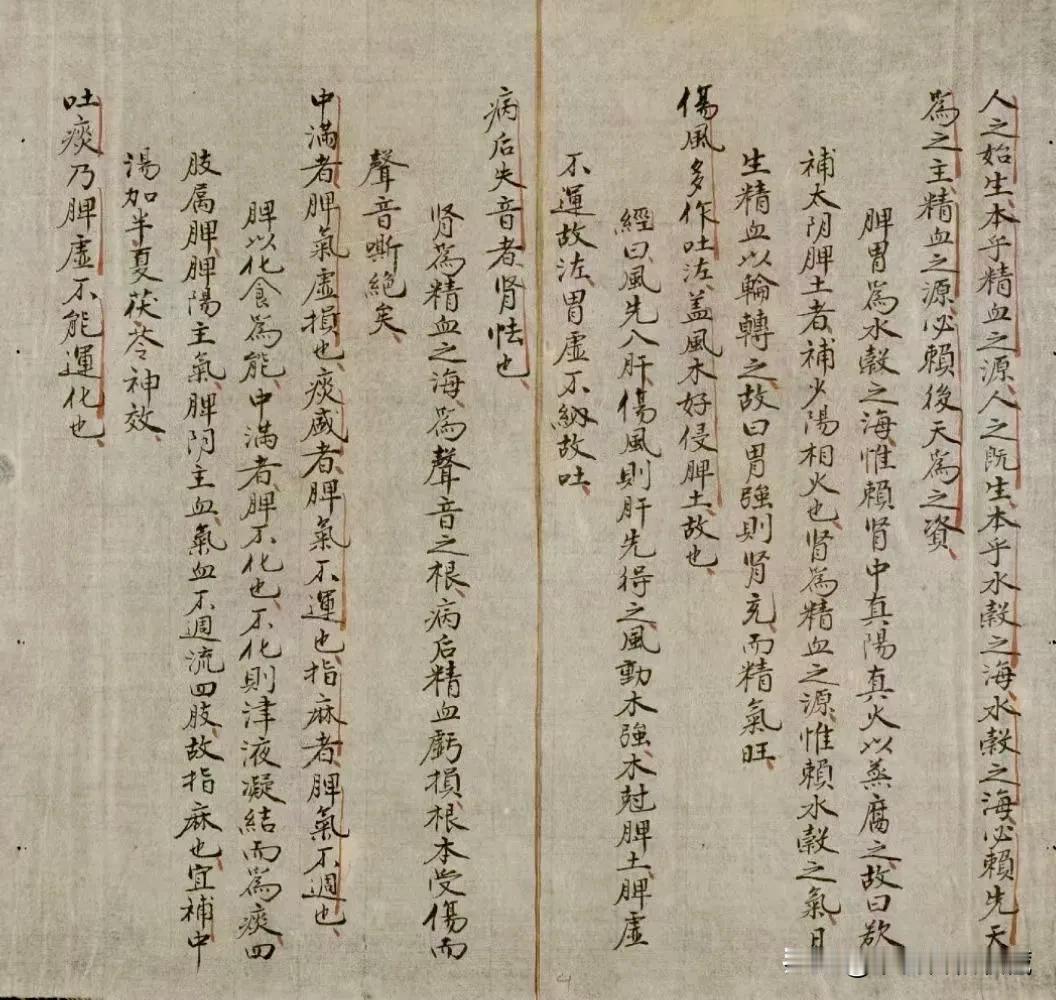 人之始生、本乎精血之源、人之既生、本乎水穀之海、水穀之海、必賴先天
為之主、精血之源、必賴後天為之資、
脾胃為水穀之海、惟賴肾中真陽真火以蒸腐之、故曰欲
補太阴脾土者、補少陽相火也、肾為精血之源、惟賴水穀之氣、日
生精血以輪轉之、故曰胃強則肾充、而精氣旺、
傷風多作吐泫、盖風木好侵脾土、故也、
經曰、風先入肝、傷風則肝先得之、風動木強、木尅脾土、脾虚
不運故泫、胃虚不納故吐、
病后失音者、肾怯也、
肾為精血之海、為聲音之根、病后精血虧損、根本受傷而
聲音嘶絕矣、
中滿者、脾氣虚損也、痰盛者、脾氣不運也、指麻者、脾氣不週也、
脾以化食為能、中滿者、脾不化也、不化則津液凝結而為痰、四
肢属脾、脾陽主氣、脾阴主血、氣血不週流四肢、故指麻也、宜補中
湯加半夏茯苓神效、
吐痰乃脾虚不能運化也、